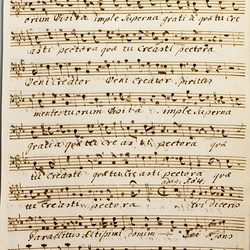 orum Visita imple Superna gratia quæ tu cre
asti pectora quæ tu creasti pectora
Veni Creator Veni Creator Spiritus
mentes tuorum Visita imple Superna
gratia quæ tu creasti pectora quæ
tu creasti quæ tu creasti pectora quæ
tu creasti pectora tu diceris
Paraclitus Altissimi donum